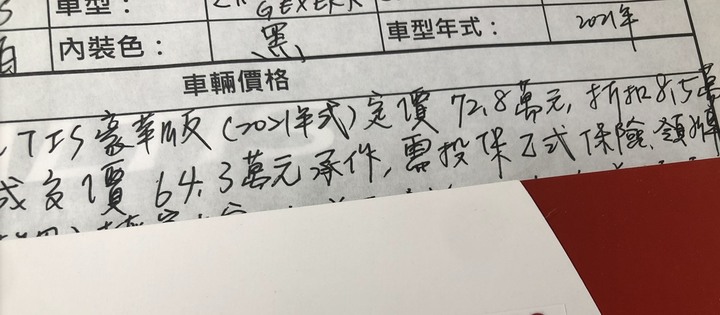 車型： GEXEKR 車型年式： 2021年
內裝色： 黑
車輛價格
TIS豪華版(2021年式)定價72.8萬元,折扣8.5萬
成交價64.3萬元承作,需投保乙式保險、領牌